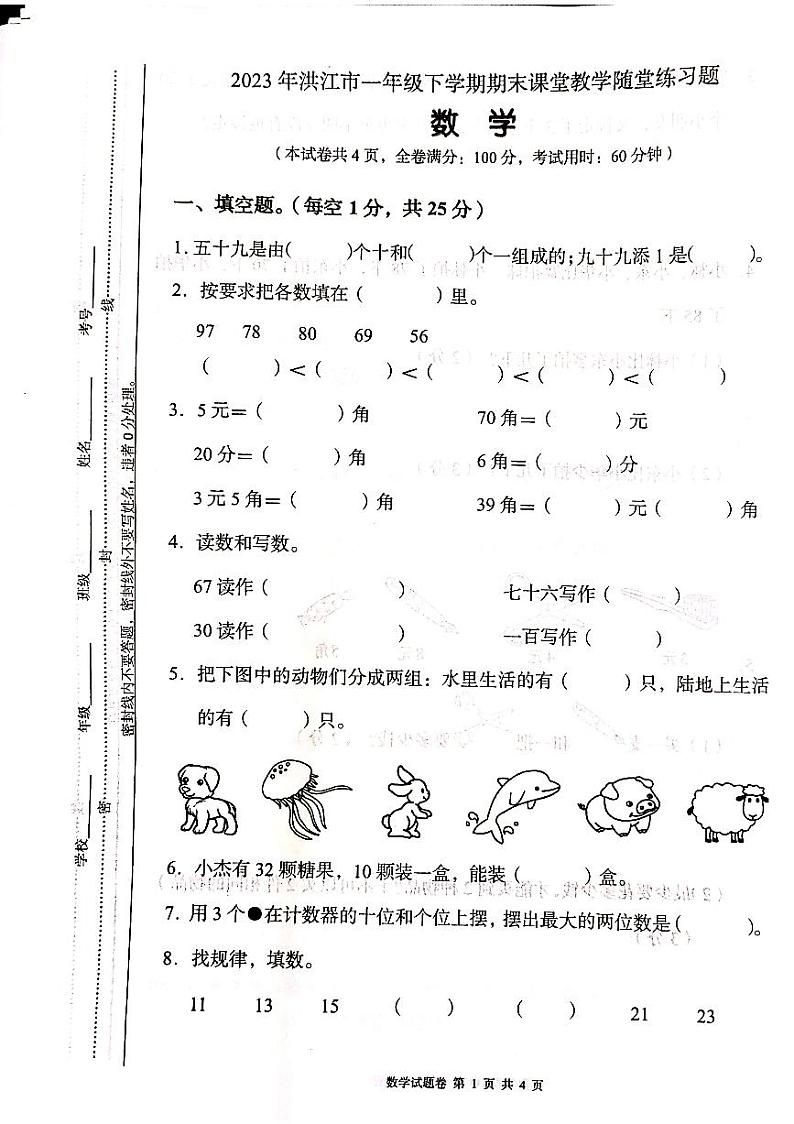 2023年洪江市一年级下学期期末课堂教学随堂练习题
数 学
（本试卷共4页，全卷满分：100分，考试用时：60分钟）
一、填空题。（每空1分，共25分）
1.五十九是由（ ）个十和（ ）个一组成的；九十九添1是（ ）。
2．按要求把各数填在（ ）里。
97 78 80 69 56
（ ）＜（ ）＜（ ）＜（ ）＜（ ）
3．5元＝（ ）角 70角＝（ ）元
20分＝（ ）角 6角＝（ ）分
3元5角＝（ ）角 39角＝（ ）元（ ）角
4．读数和写数。
67读作（ ） 七十六写作（ ）
30读作（ ） 一百写作（ ）
5．把下图中的动物们分成两组：水里生活的有（ ）只，陆地上生活
的有（ ）只。
6．小杰有32颗糖果，10颗装一盒，能装（ ）盒。
7．用3个●在计数器的十位和个位上摆，摆出最大的两位数是（ ）。
8．找规律，填数。
11 13 15 （ ） （ ） 21 23
数学试题卷 第1页 共4页
学校 年级 班级 姓名 考号
密封线内不要答题，密封线外不要写姓名，违者0分处理。
密 封 线